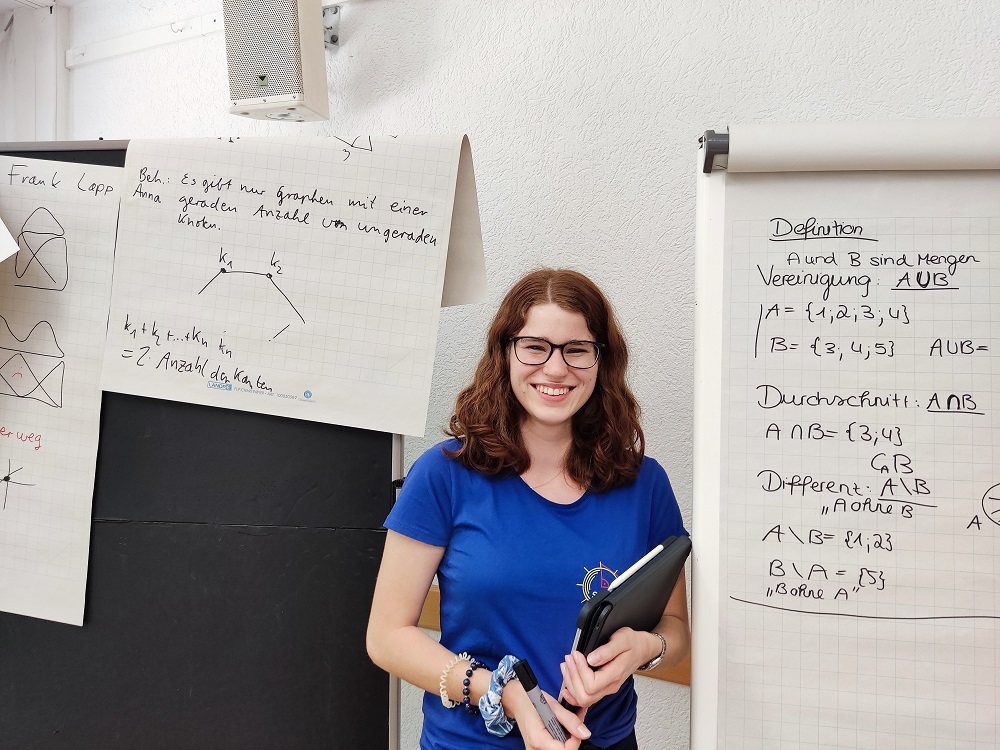 Frank Lapp
er weg
3
Beh.: Es gibt nur Graphen mit einer
Anna geraden Anzahl von ungeraden
Knoten.
k₁ k₂
k₁ + k₂ + ... + kn
= 2· Anzahl der Kanten
LANDRÉ
Definition
A und B sind Mengen
Vereinigung: A∪B
A = {1;2;3;4}
B = {3;4;5} A∪B =
Durchschnitt: A∩B
A∩B = {3;4}
C_A B
Different: A\B
"A ohne B
A\B = {1;2}
A
B\A = {5}
"B ohne A"